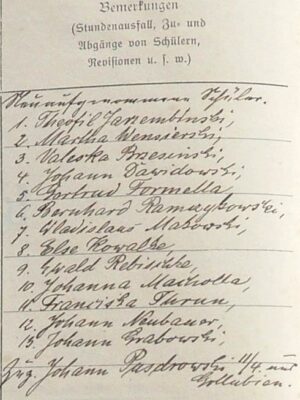 Bemerkungen
(Stundenausfall, Zu- und
Abgänge von Schülern,
Revisionen u. s. w.)
Neuaufgenommene Schüler.
1. Theofil
2. Martha Wensierski,
3. Valeska Brzesinski,
4. Johann Dawidowski,
5. Gertrud Formella,
6. Bernhard
7. Wladislaus Makowski,
8. Else Kowalke,
9. Ewald Rebischke,
10. Johanna Macholla,
11. Franciska Thrun,
12. Johann Neubauer,
13. Johann Grabowski,
Zug. Johann 11/4. aus
Gollubien.